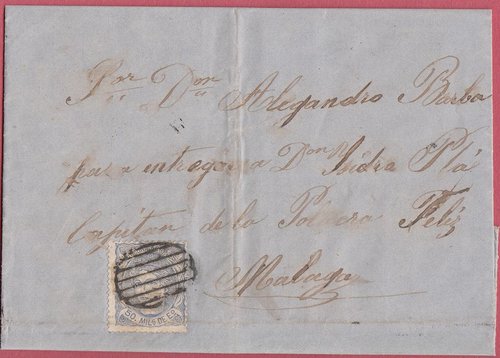 Por Don Alejandro Barba
pa a entregar a Don Isidro Plá
Capitan de la Polacra Feliz
Malaga
50 MILS. DE EO.